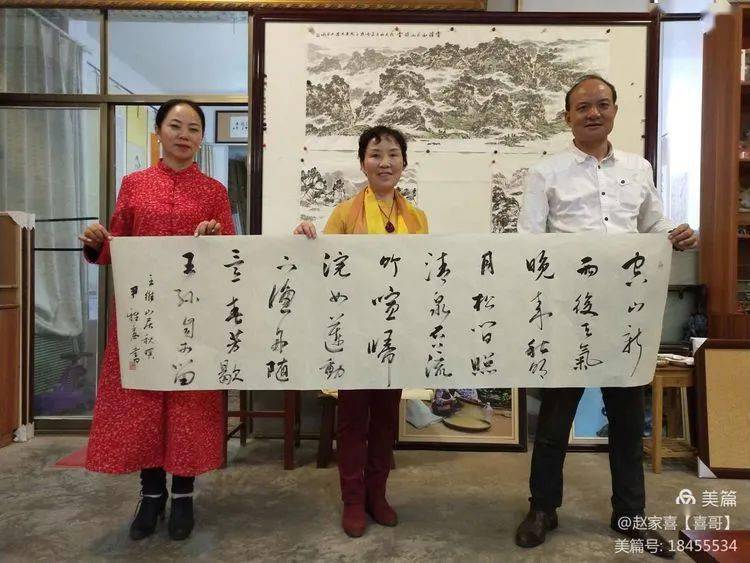 空山新
雨後天氣
晚来秋明
月松間照
清泉石上流
竹喧歸
浣女蓮動
下漁舟随
意春芳歇
王孫自可留
王維山居秋暝
尹書
美篇
@赵家喜【喜哥】
美篇号: 18455534